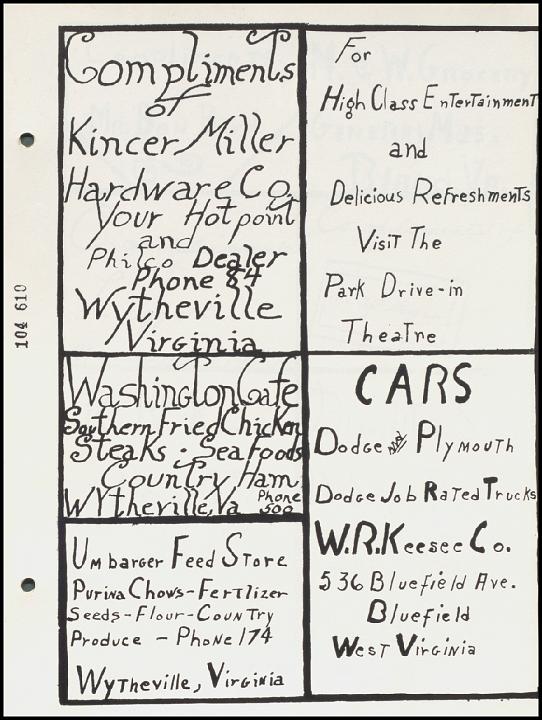 Compliments
of
Kincer Miller
Hardware Co.
Your Hotpoint
and
Philco Dealer
Phone 84
Wytheville
Virginia
Washington Cafe
Southern Fried Chicken
Steaks - Sea Foods
Country Ham
Wytheville, Va Phone 500
Umbarger Feed Store
Purina Chows - Fertlizer
Seeds - Flour - Country
Produce - Phone 174
Wytheville, Virginia
For
High Class Entertainment
and
Delicious Refreshments
Visit The
Park Drive-in
Theatre
CARS
Dodge and Plymouth
Dodge Job Rated Trucks
W.R. Keesee Co.
536 Bluefield Ave.
Bluefield
West Virginia
104 610